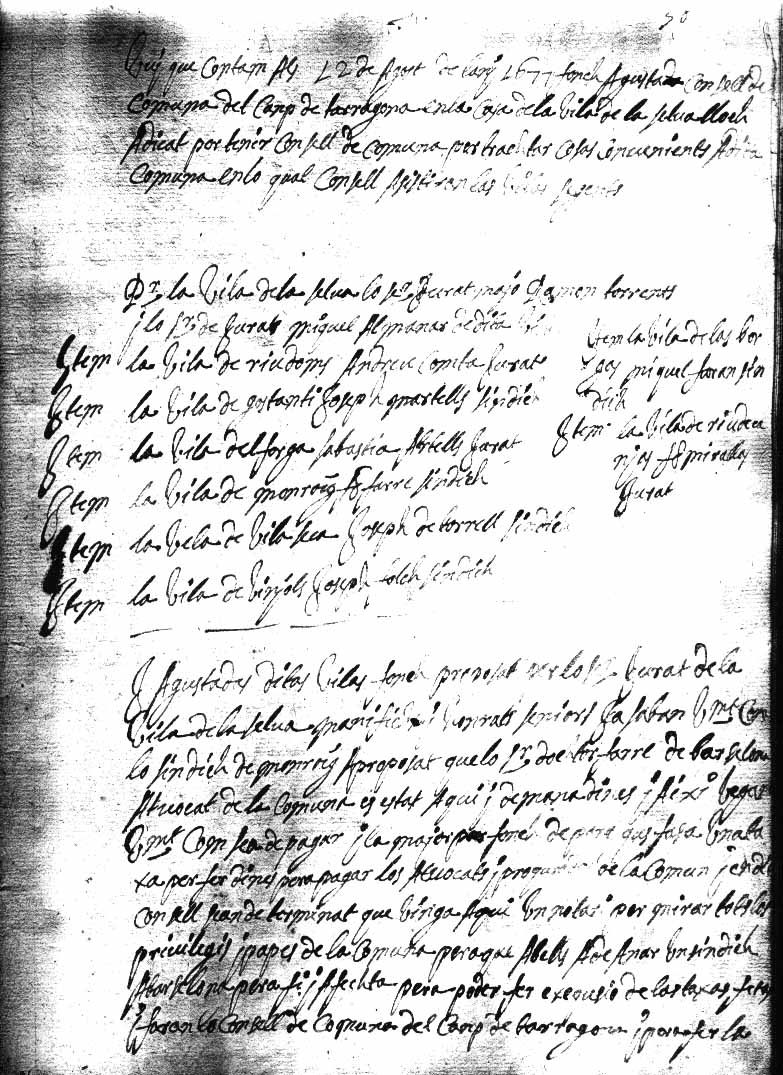 Vuy que Contam Als 12 de Agost de lany 1677 fonch Agustada Consell de
Comuna del Camp de tarragona en la Casa de la Vila de la selva lloch
Adicat per tenir Consell de Comuna per trachtar Cosas Convenients Adita
Comuna en lo qual Consell Asistiren las Vilas segents
Pr. la Vila de la selva lo sr. Jurat majó Ramon torrents
i lo sr. de Jurat miquel Almanar de dita
Item la Vila de riudoms Andreu Comta Jurat
Item la Vila de gostanti Joseph martells sindich
Item la Vila del forga sabastia Artells Jurat
Item la Vila de monroig fr farre sindich
Item la Vela de Vila seca Joseph de torrell sindich
Item la Vila de Vinyols Joseph folch sindich
Item la Vila de las bor
ges miquel foran sin
dich
Item la Vila de riudeca
nyes miralles
Jurat
I Agustades ditas Vilas fonch preposat per lo sr. Jurat de la
Vila de la selva manifichs i honrats seniors Ja saban Vmt Com
lo sindich de monroig Aproposat que lo sr. doctor farre de barselona
Atvocat de la Comuna es estat Aqui i demana dines i Aixi vegan
Vmt Com sea de pagar i la major part fonch de pare que fasa Vna ta
xa per fer dines pera pagar los Atvocats i procuradors de la Comun i en dit
Consell sean determinat que Vinga Aqui Vn notari per mirar tots los
privilegis i papes de la Comuna pera que Abells Ade Anar Vn sindich
Abarselona pera fi i Afechta pera poder fer exequsio de las taxas fetas
i faran lo Consell de Comuna del Camp de tarragona i pera fer la